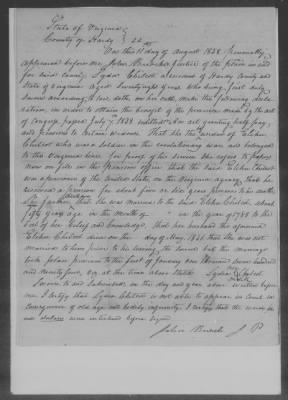 State of Virginia
County of Hardy
On this 11 day of August 1838 personally
appeared before me John a Justice of the peace in and
for said County Lydia Chilcot a resident of Hardy County and
State of Virginia Aged Seventy eight years who being first duly
Sworn according to law, doth, on her oath, make the following decla-
ration, in order to obtain the benefit of the provision made by the act
of Congress passed July 7, 1838 entitled An act granting half pay
and pensions to certain widows That she is the widow of Elihu
Chilcot who was a soldier in the revolutionary war and belonged
to the Virginia line. For proof of his service she refers to papers
now on file in the pension office that the said Elihu Chilcot
was a pensioner of the United States in the Virginia agency, that he
received a pension for about five or six years previous to his death
She further that she was married to the said Elihu Chilcot about
years ago in the month of in the year of 1788 to the
best of her belief and knowledge, that her husband the aforesaid
Elihu Chilcot died on the day of May 1826 that she was not
married to him prior to his leaving the service but the marriage
took place previous to the first of January one thousand seven hundred
and ninety four, viz at the time above stated. Lydia Chilcot
Sworn to and Subscribed on the day and year above written before
me I certify that Lydia Chilcot is not able to appear in Court in
consequence of old age and bodily infirmity, I certify that the words
and were interlined before signed
John J P